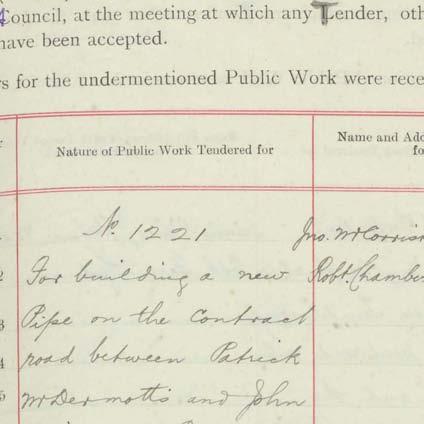 Council, at the meeting at which any Tender, oth
have been accepted.
rs for the undermentioned Public Work were rece
Nature of Public Work Tendered for
Name and Add
fo
No. 1221
Jno. McCorris
2 For building a new Robt. Chambe
3 Pipe on the contract
4 road between Patrick
5 McDermotts and John